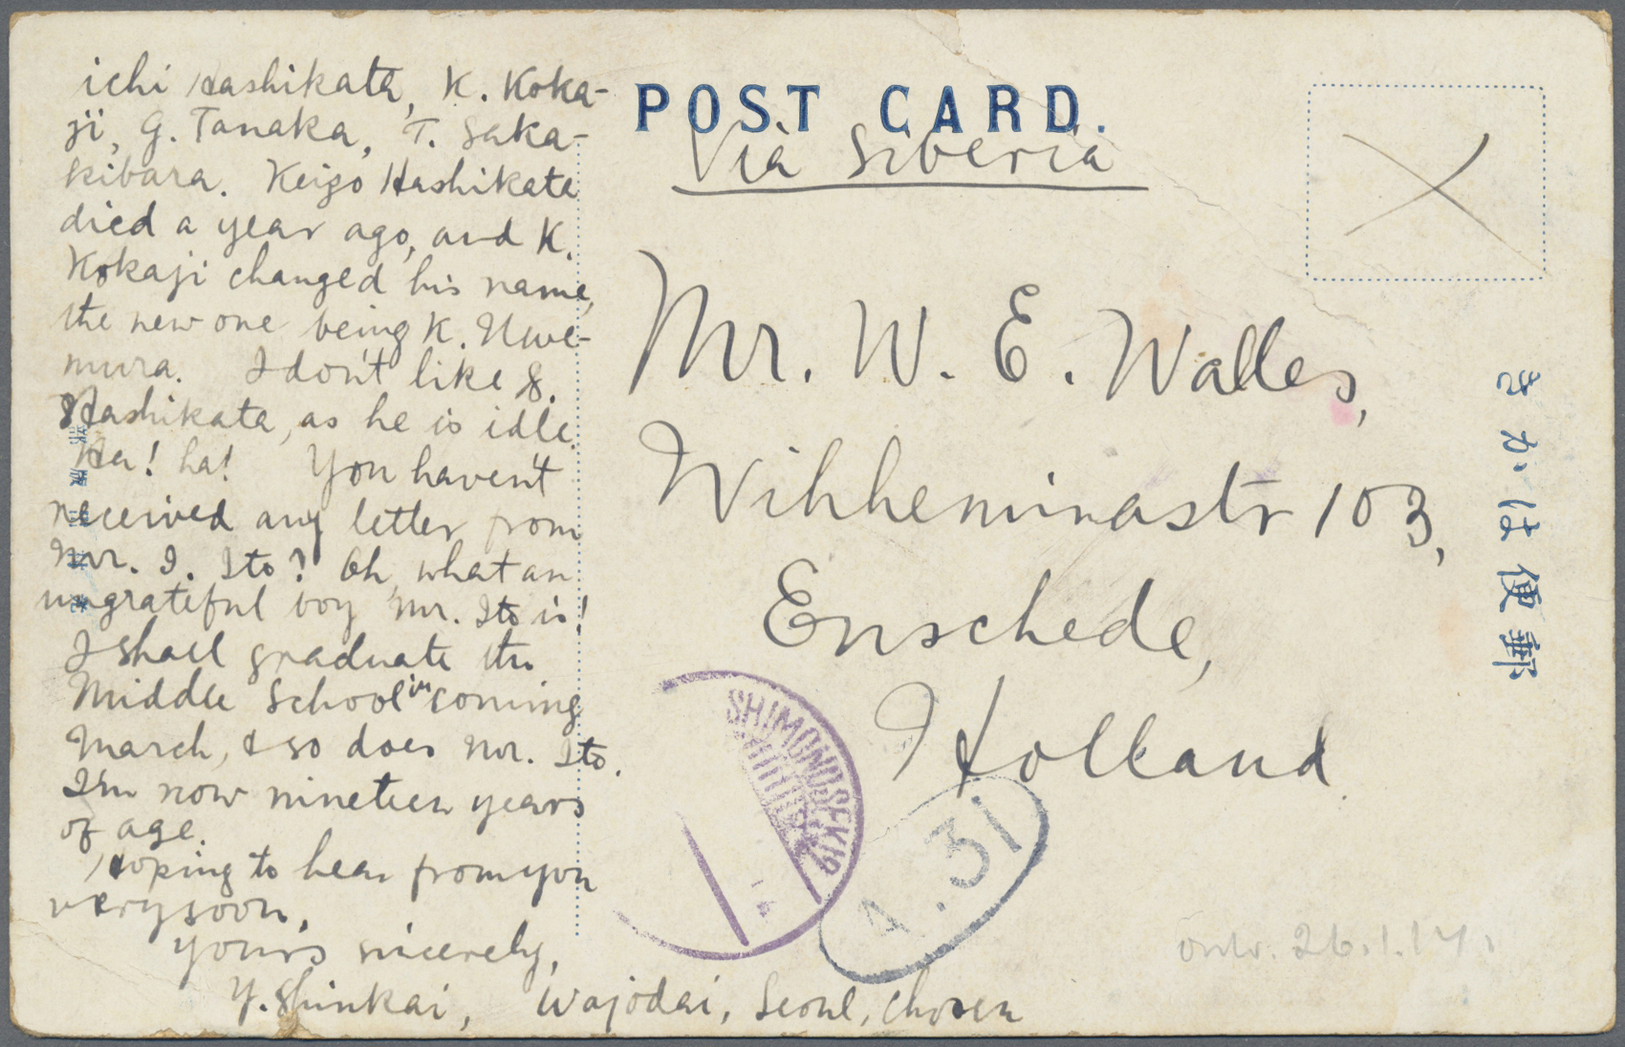 ichi Hashikata, K. Koka-
ji, G. Tanaka, T. Saka-
kibara. Keigo Hashikata
died a year ago, and K.
Kokaji changed his name,
the new one being K. Uwe-
mura. I don't like S.
Hashikata, as he is idle.
Ha! ha! You haven't
received any letter from
Mr. I. Ito? Oh, what an
ungrateful boy Mr. Ito is!
I shall graduate the
Middle School in coming
March, & so does Mr. Ito.
I'm now nineteen years
of age.
Hoping to hear from you
very soon,
Yours sincerely,
Y. Shinkai, Wajodai, Seoul, Chosen
POST CARD.
Via Siberia
Mr. W. E. Walles,
Wihheminastr 103,
Enschede,
Holland.
きかは便郵
SHIMONOSEKI
1.31
26.1.14.